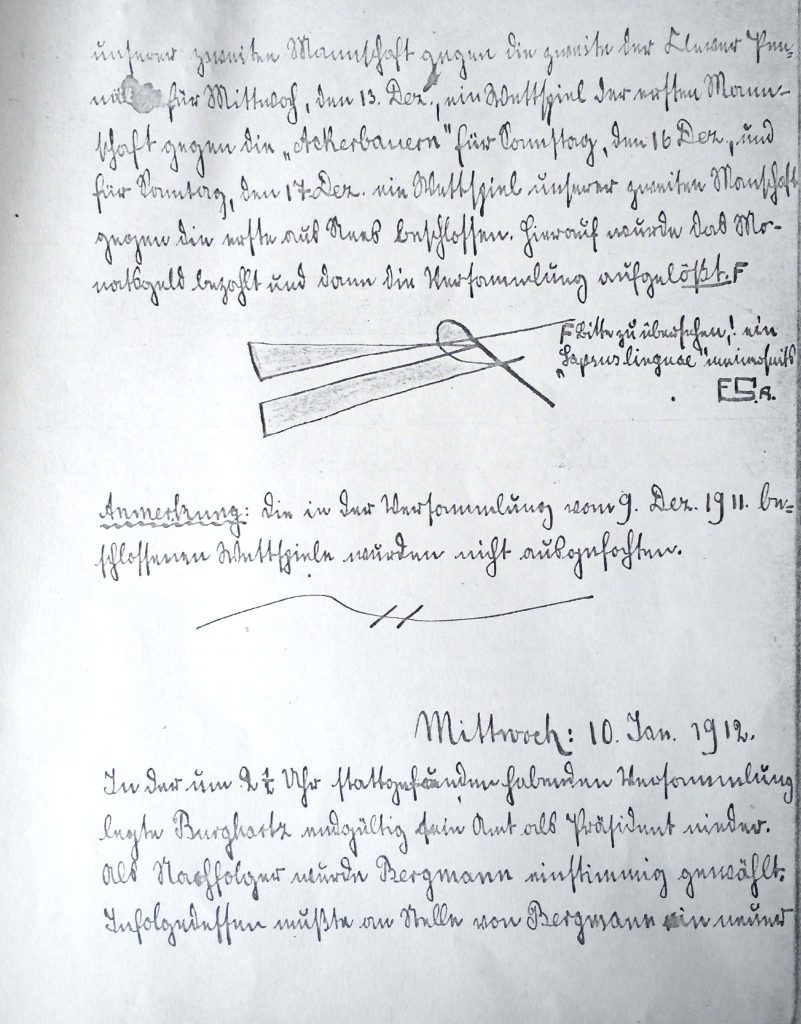 unserer zweiten Mannschaft gegen die zweite der Klever Pen-
näler für Mittwoch, den 13. Dez., ein Wettspiel der ersten Mann-
schaft gegen die „Ackerbauern" für Samstag, den 16 Dez., und
für Sonntag, den 17. Dez. ein Wettspiel unserer zweiten Manschaft
gegen die erste aus Rees beschlossen. Hierauf wurde das Mo-
natsgeld bezahlt und dann die Versammlung aufgelößt. F
F Bitte zu übersehen,! ein
„Lapsus linguae" meinerseits
ES.A.
Anmerkung: Die in der Versammlung vom 9. Dez. 1911. be-
schlossenen Wettspiele wurden nicht ausgefochten.
Mittwoch: 10. Jan. 1912.
In der um 2 1/2 Uhr stattgefunden habenden Versammlung
legte Burghartz endgültig sein Amt als Präsident nieder.
Als Nachfolger wurde Bergmann einstimmig gewählt.
Infolgedessen mußte an Stelle von Bergmann ein neuer